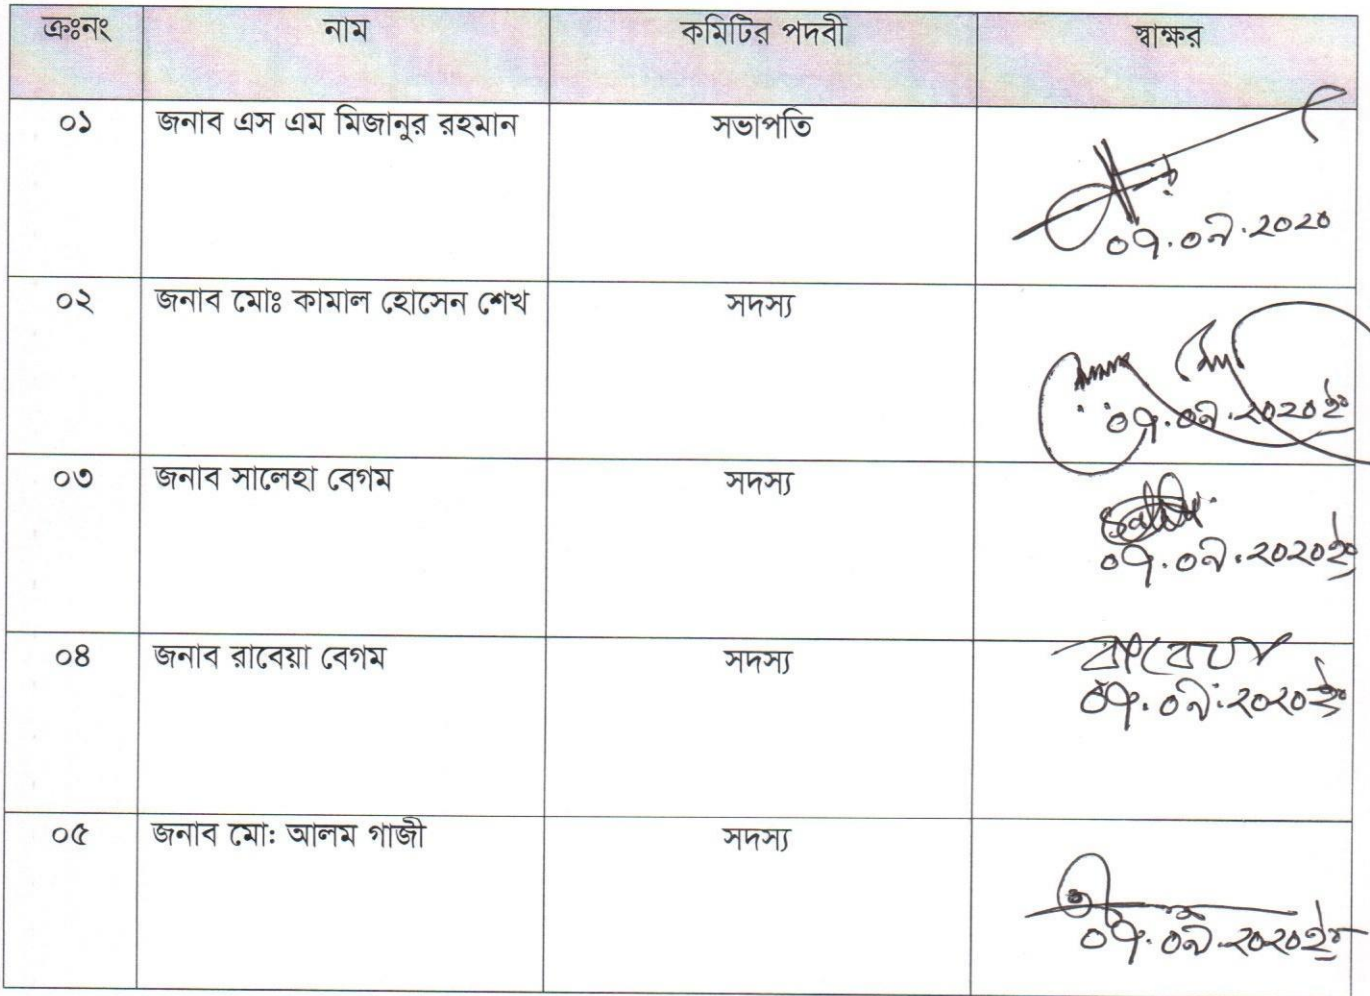 ক্রঃনং নাম কমিটির পদবী স্বাক্ষর
০১ জনাব এস এম মিজানুর রহমান সভাপতি
০৭.০৯.২০২০
০২ জনাব মোঃ কামাল হোসেন শেখ সদস্য
০৭.০৯.২০২০ইং
০৩ জনাব সালেহা বেগম সদস্য
০৭.০৯.২০২০ইং
০৪ জনাব রাবেয়া বেগম সদস্য রাবেয়া
০৭.০৯.২০২০ইং
০৫ জনাব মো: আলম গাজী সদস্য
০৭.০৯.২০২০ইং